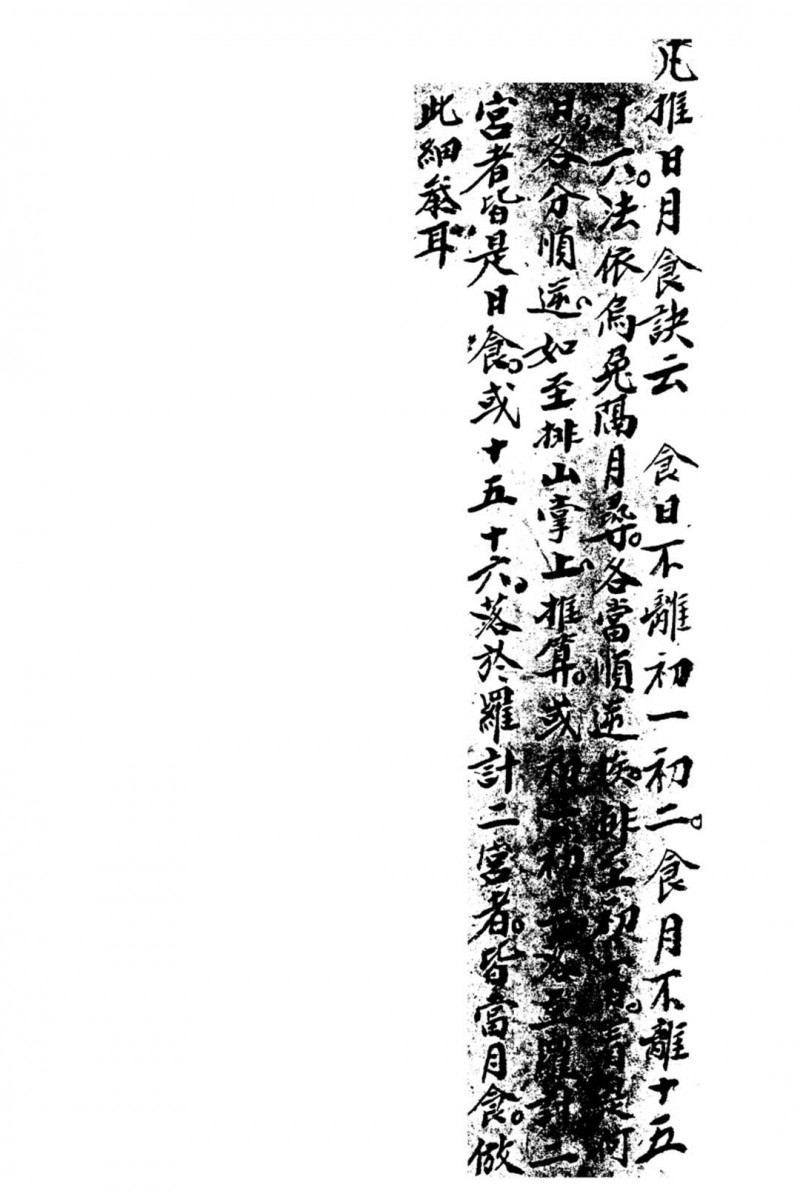 凡推日月食訣云　食日不離初一初二。食月不離十五
十六。法依烏兔隔月尋。各當順逆挨排至初一日。看是何
日。各分順逆。如至排山掌上推算。或初一初二落至羅計二
宮者皆是日食。或十五十六。落於羅計二宮者。皆當月食。倣
此細叅耳